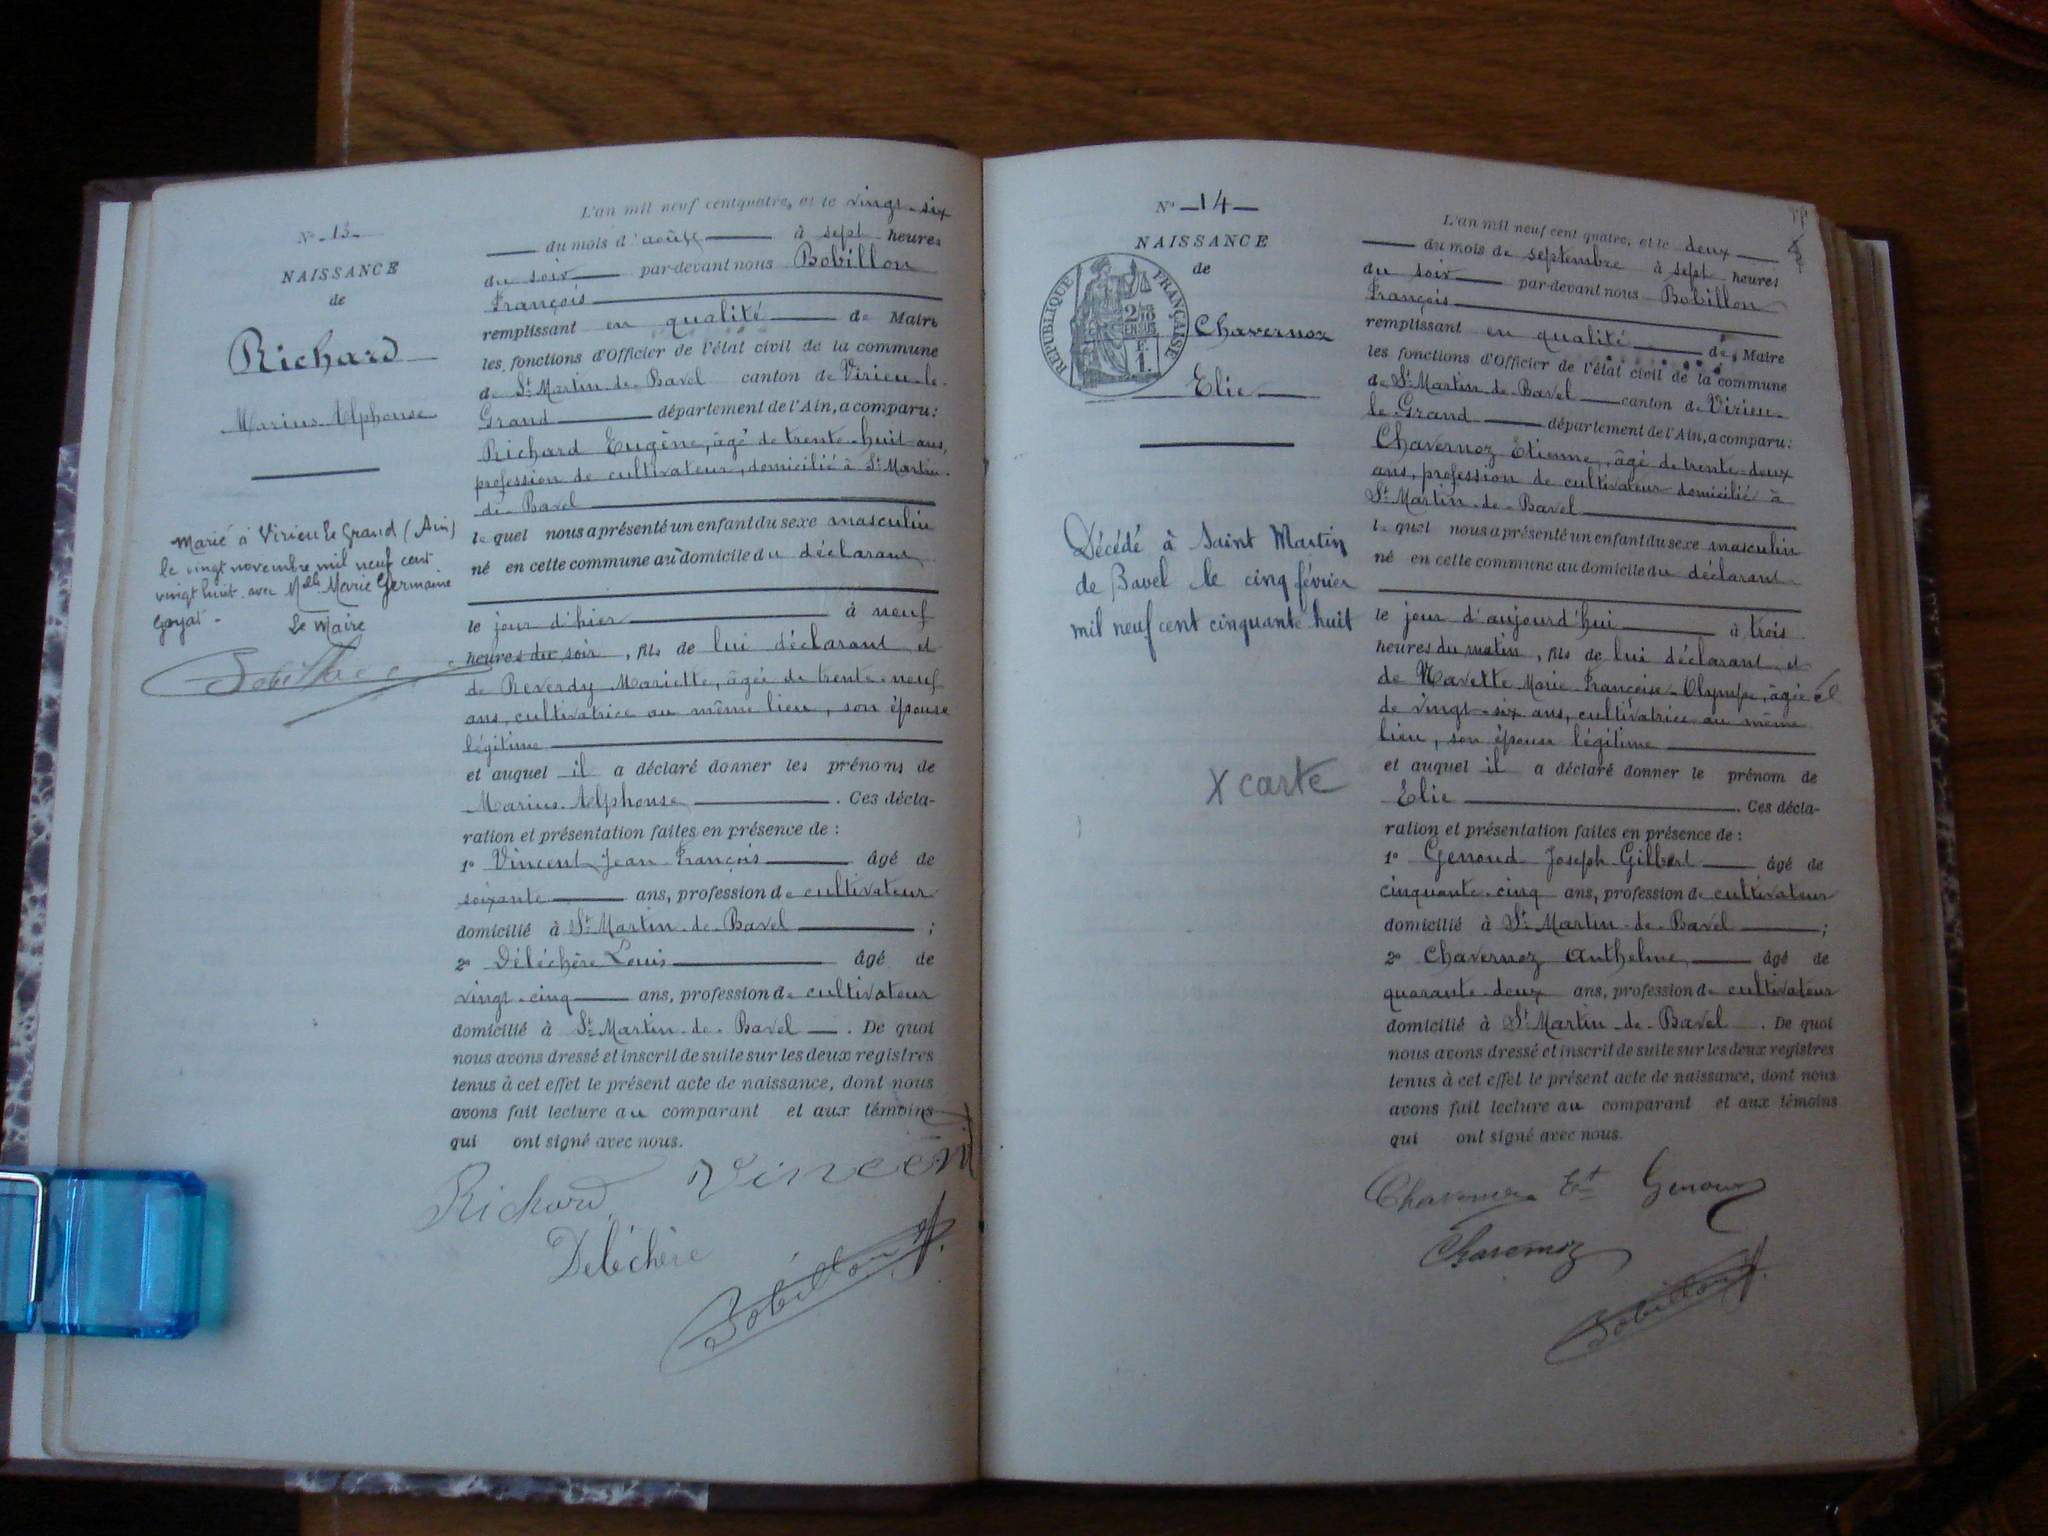 N° 13
NAISSANCE
de
Richard
Marius Alphonse
Marié à Virieu le Grand (Ain)
le vingt novembre mil neuf cent
vingt huit avec Melle Marie Germaine
Goyat.
Le Maire
L'an mil neuf cent quatre, et le vingt-six
du mois d'août à sept heures
du soir par-devant nous Bobillon
François
remplissant en qualité de Maire
les fonctions d'Officier de l'état civil de la commune
de St Martin-de-Bavel canton de Virieu-le-
Grand département de l'Ain, a comparu:
Richard Eugène, âgé de trente-huit ans,
profession de cultivateur, domicilié à St Martin-
de-Bavel
le quel nous a présenté un enfant du sexe masculin
né en cette commune au domicile du déclarant
le jour d'hier à neuf
heures du soir, fils de lui déclarant et
de Reverdy Mariette, âgée de trente-neuf
ans, cultivatrice au même lieu, son épouse
légitime
et auquel il a déclaré donner les prénoms de
Marius Alphonse. Ces décla-
ration et présentation faites en présence de :
1° Vincent Jean François âgé de
soixante ans, profession de cultivateur
domicilié à St Martin-de-Bavel ;
2° Déléchère Louis âgé de
vingt-cinq ans, profession de cultivateur
domicilié à St Martin-de-Bavel. De quoi
nous avons dressé et inscrit de suite sur les deux registres
tenus à cet effet le présent acte de naissance, dont nous
avons fait lecture au comparant et aux témoins
qui ont signé avec nous.
Richard Vincent
Deléchère
Bobillon
N° 14
NAISSANCE
de
RÉPUBLIQUE FRANÇAISE
Chavernoz
Elie
Décédé à Saint Martin
de Bavel le cinq février
mil neuf cent cinquante huit
X carte
L'an mil neuf cent quatre, et le deux
du mois de septembre à sept heures
du soir par-devant nous Bobillon
François
remplissant en qualité de Maire
les fonctions d'Officier de l'état civil de la commune
de St Martin-de-Bavel canton de Virieu-
le-Grand département de l'Ain, a comparu:
Chavernoz Etienne, âgé de trente-deux
ans, profession de cultivateur domicilié à
St Martin-de-Bavel
le quel nous a présenté un enfant du sexe masculin
né en cette commune au domicile du déclarant
le jour d'aujourd'hui à trois
heures du matin, fils de lui déclarant et
de Navette Marie-Françoise-Olympe, âgée
de vingt-six ans, cultivatrice au même
lieu, son épouse légitime
et auquel il a déclaré donner le prénom de
Elie. Ces décla-
ration et présentation faites en présence de :
1° Genoud Joseph Gilbert âgé de
cinquante-cinq ans, profession de cultivateur
domicilié à St Martin-de-Bavel ;
2° Chavernoz Anthelme âgé de
quarante-deux ans, profession de cultivateur
domicilié à St Martin-de-Bavel. De quoi
nous avons dressé et inscrit de suite sur les deux registres
tenus à cet effet le présent acte de naissance, dont nous
avons fait lecture au comparant et aux témoins
qui ont signé avec nous.
Chavernoz Et Genoud
Chavernoz
Bobillon